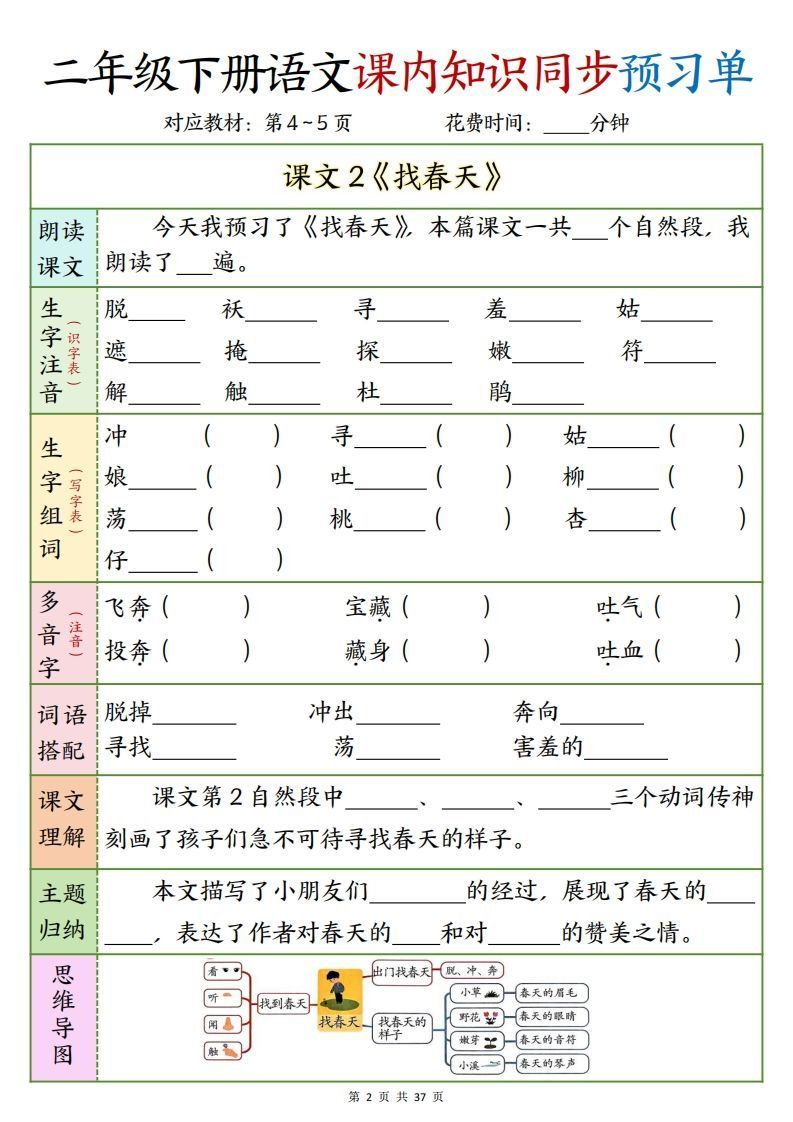 二年级下册语文课内知识同步预习单
对应教材：第4~5页 花费时间：____分钟
课文2《找春天》
朗读课文
今天我预习了《找春天》，本篇课文一共___个自然段，我
朗读了___遍。
生字注音（识字表）
脱_____ 袄______ 寻______ 羞______ 姑______
遮______ 掩______ 探______ 嫩______ 符______
解______ 触______ 杜______ 鹃______
生字组词（写字表）
冲 （ ） 寻______（ ） 姑______（ ）
娘______（ ） 吐______（ ） 柳______（ ）
荡______（ ） 桃______（ ） 杏______（ ）
仔______（ ）
多音字（注音）
飞奔（ ） 宝藏（ ） 吐气（ ）
投奔（ ） 藏身（ ） 吐血（ ）
词语搭配
脱掉_______ 冲出_______ 奔向_______
寻找_______ 荡_______ 害羞的_______
课文理解
课文第2自然段中______、______、______三个动词传神
刻画了孩子们急不可待寻找春天的样子。
主题归纳
本文描写了小朋友们________的经过，展现了春天的____
____，表达了作者对春天的____和对______的赞美之情。
思维导图
看
听
闻
触
找到春天
找春天
出门找春天
脱、冲、奔
找春天的
样子
小草
春天的眉毛
野花
春天的眼睛
嫩芽
春天的音符
小溪
春天的琴声
第 2 页 共 37 页